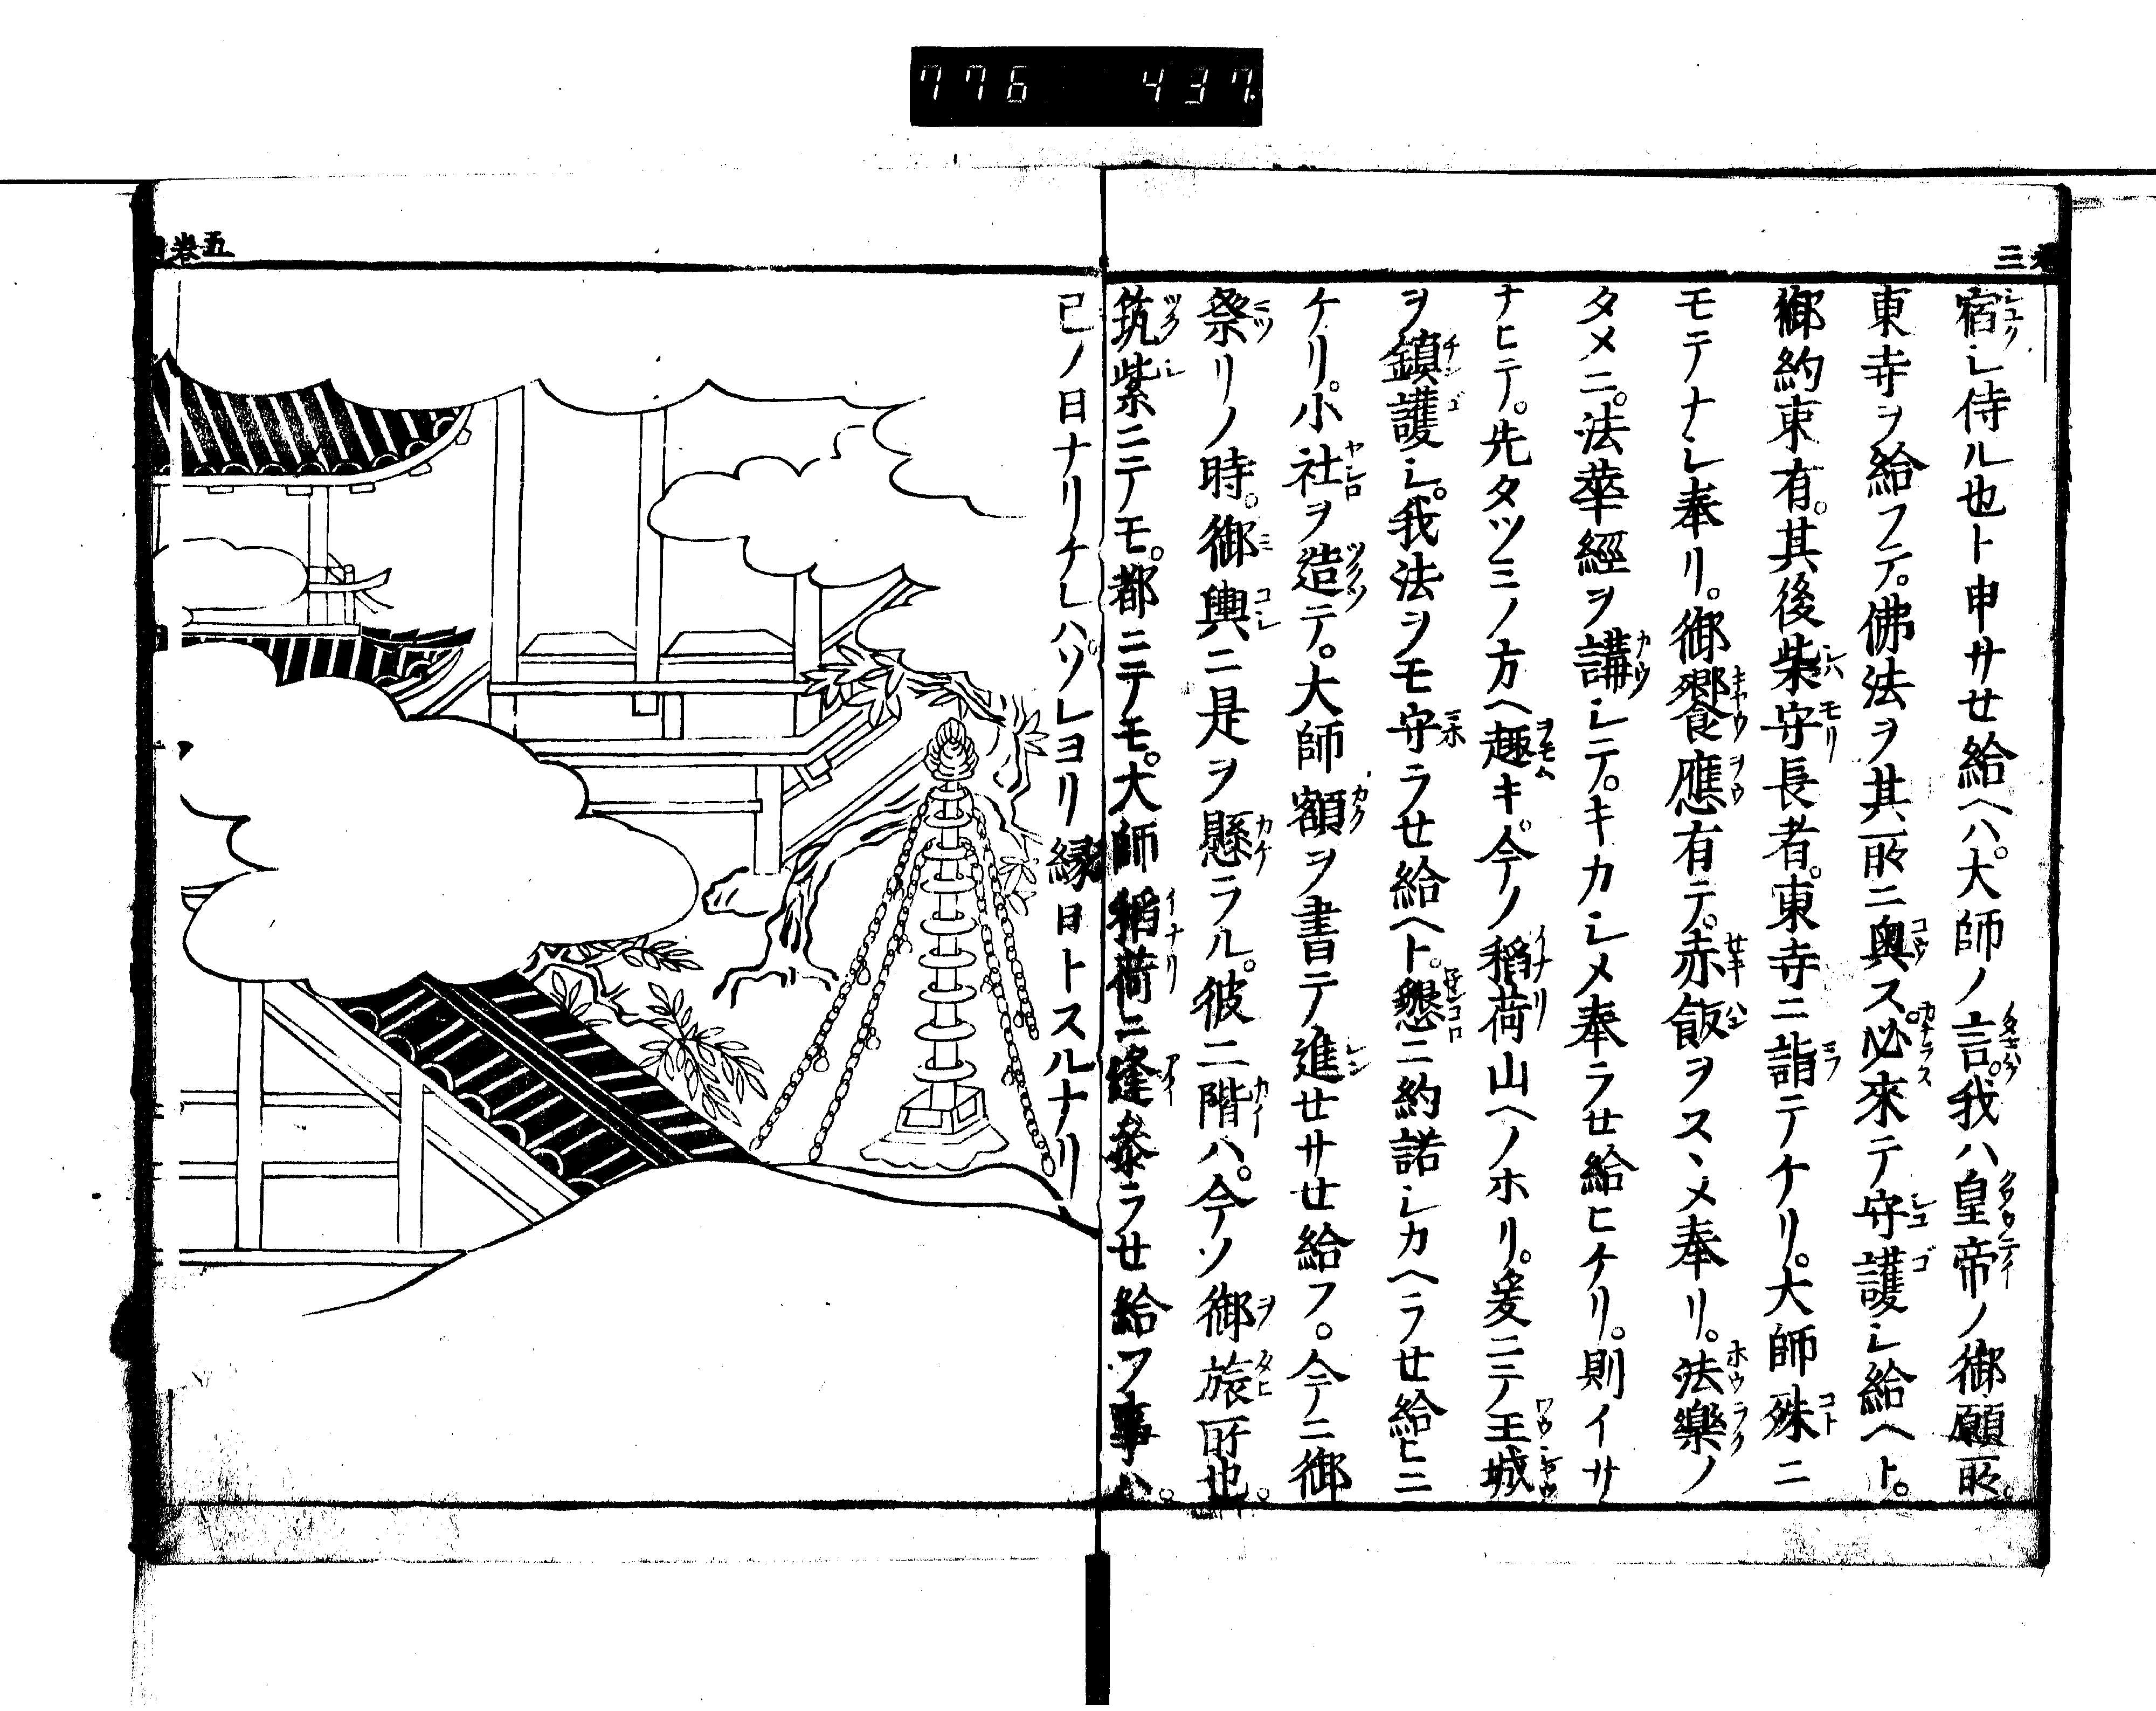 776 437
三
宿シ侍ル也ト申サセ給ヘハ。大師ノ言。我ハ皇帝ノ御願所。
東寺ヲ給フテ。佛法ヲ其所ニ興ス。必來テ守護シ給ヘト。
御約束有。其後柴守長者。東寺ニ詣テケリ。大師殊ニ
モテナシ奉リ。御饗應有テ。赤飯ヲスヽメ奉リ。法樂ノ
タメニ。法華經ヲ講シテ。キカシメ奉ラセ給ヒケリ。則イサ
ナヒテ。先タツミノ方ヘ趣キ。今ノ稻荷山ヘノホリ。爰ニテ王城
ヲ鎮護シ。我法ヲモ守ラセ給ヘト。懇ニ約諾シカヘラセ給ヒニ
ケリ。小社ヲ造テ。大師額ヲ書テ進セサセ給フ。今ニ御
祭リノ時。御輿ニ是ヲ懸ラル。彼二階ハ。今ソ御旅所也。
筑紫ニテモ。都ニテモ。大師稻荷ニ逢參ラセ給フ事ハ。
五巻
巳ノ日ナリケレハ。ソレヨリ縁日トスルナリ